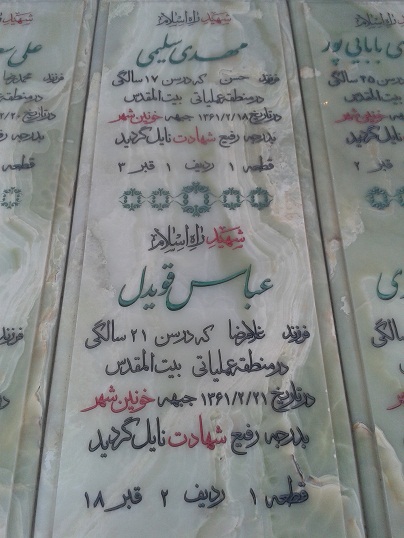 شهید راه اسلام
مهدی سلیمی
فرزند حسن که در سن ۱۷ سالگی
در منطقه عملیاتی بیت المقدس
در تاریخ ۱۳۶۱/۲/۱۸ جبهه خونین شهر
بدرجه رفیع شهادت نایل گردید
قطعه ۱ ردیف ۱ قبر ۳
شهید راه اسلام
عباس قویدل
فرزند غلامرضا که در سن ۲۱ سالگی
در منطقه عملیاتی بیت المقدس
در تاریخ ۱۳۶۱/۲/۲۱ جبهه خونین شهر
بدرجه رفیع شهادت نایل گردید
قطعه ۱ ردیف ۲ قبر ۱۸
شهید راه اسلام
بابایی پور
سن ۲۵ سالگی
بیت المقدس
جبهه خونین شهر
شهادت نایل گردید
قبر ۲
شهید
علی
فرزند محمدرضا
در منطقه
در تاریخ
بدرجه رفیع
قطعه ۱